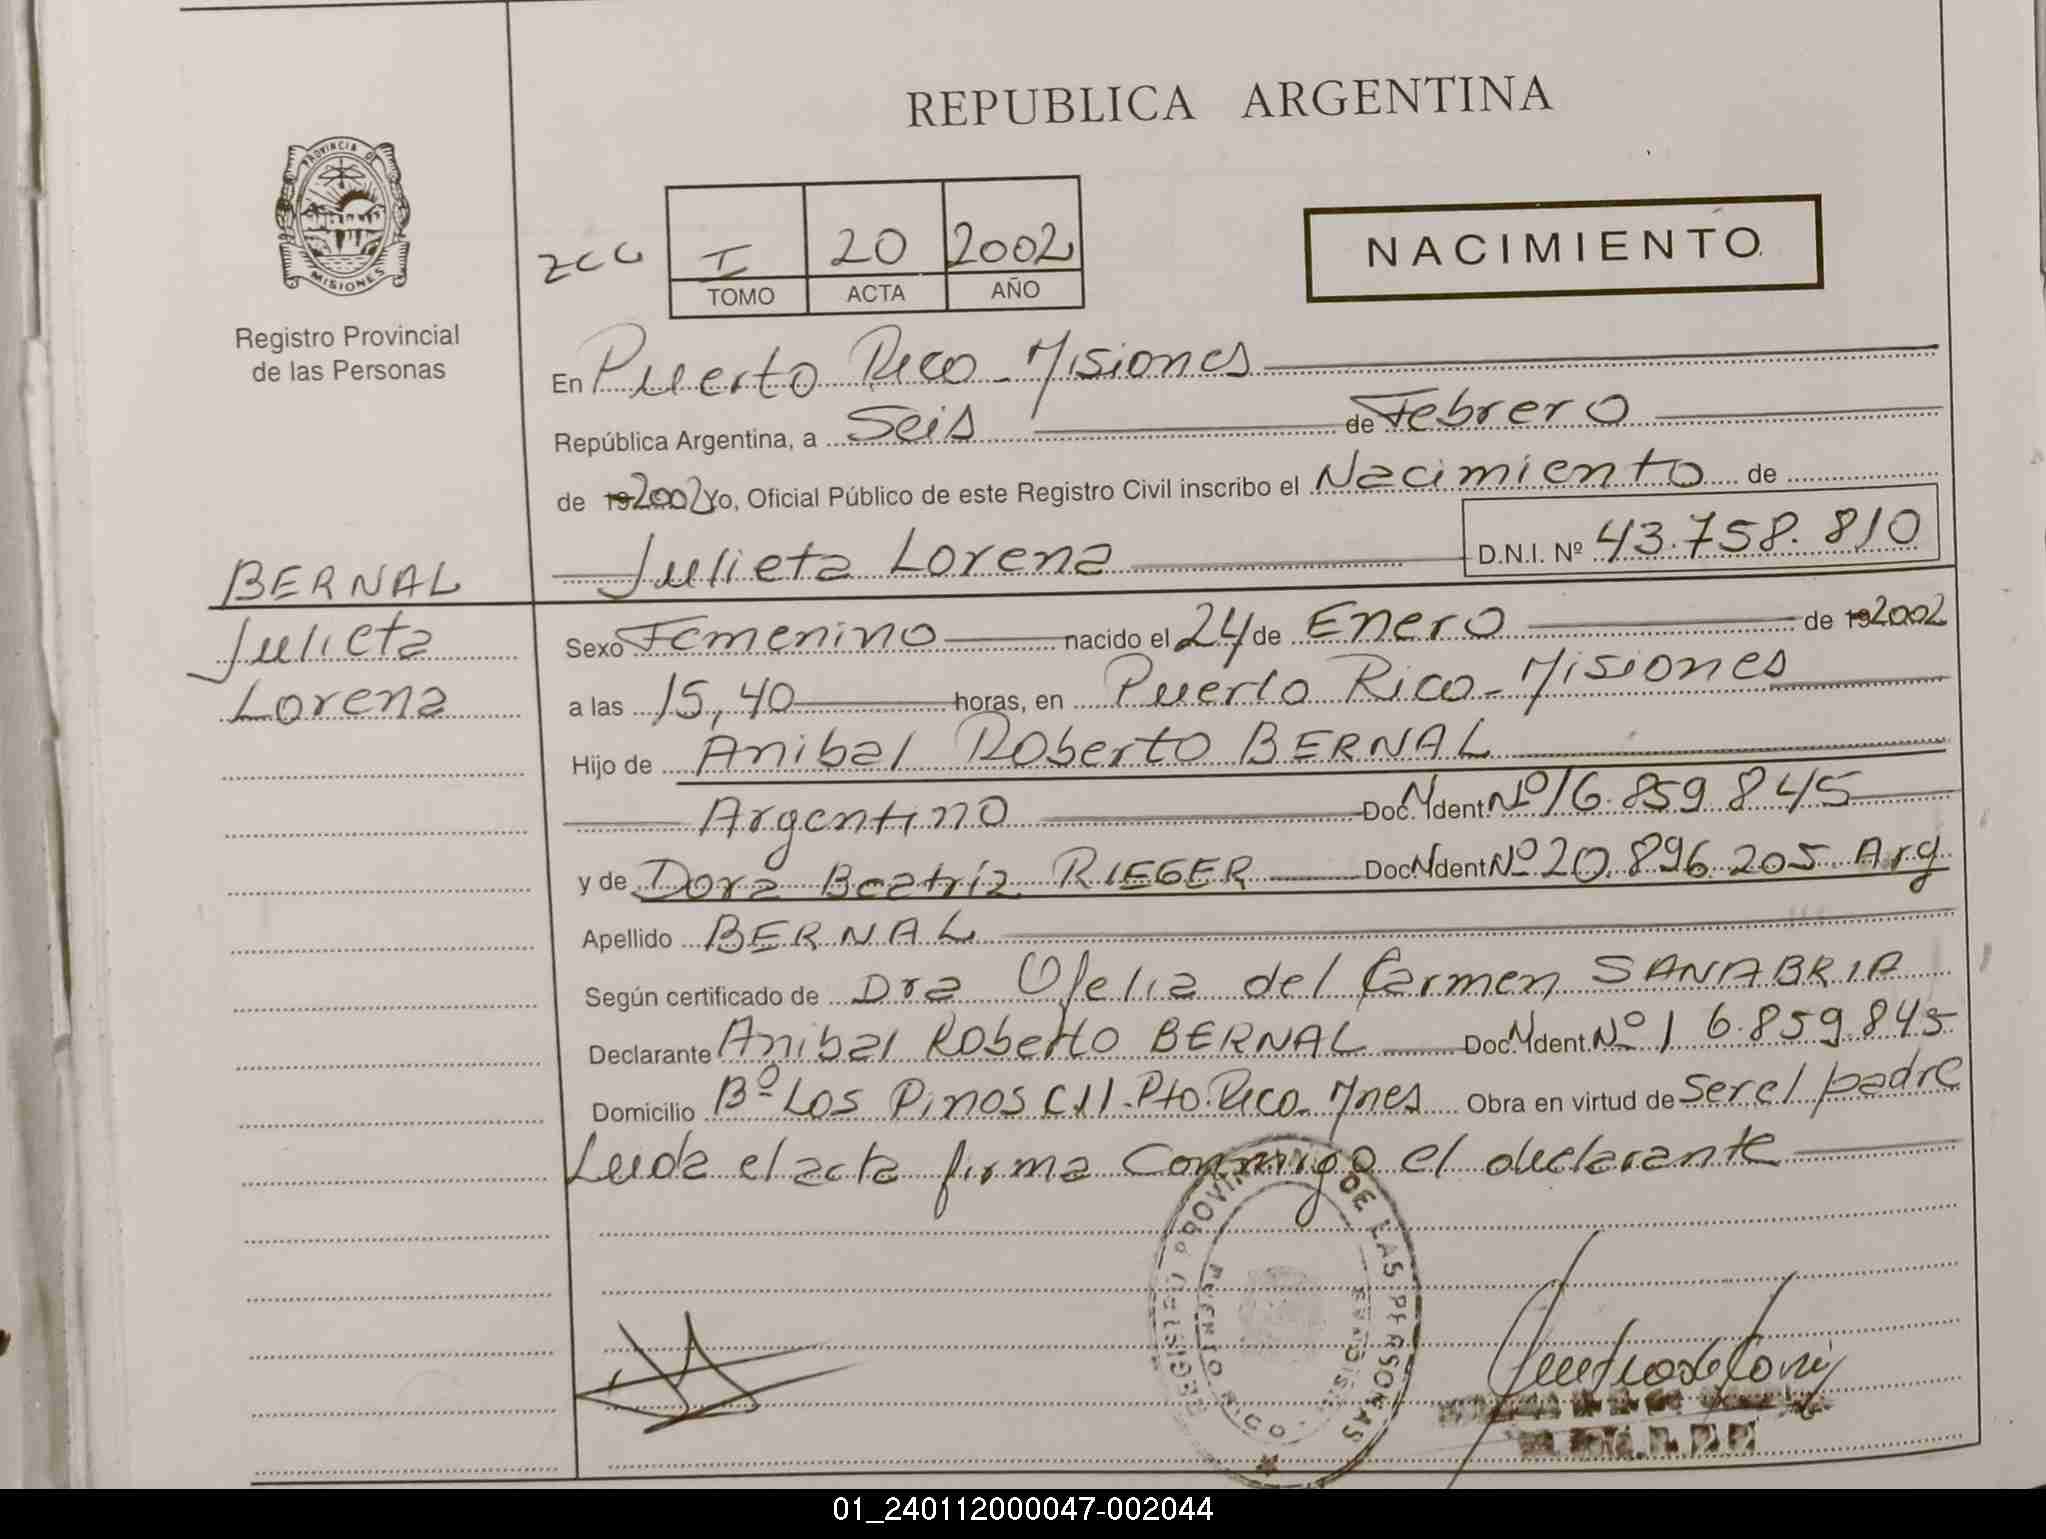 REPUBLICA ARGENTINA
PROVINCIA DE
MISIONES
Registro Provincial
de las Personas
I 20 2002
TOMO ACTA AÑO
NACIMIENTO
En Puerto Rico - Misiones
República Argentina, a Seis de Febrero
de 192002 Yo, Oficial Público de este Registro Civil inscribo el Nacimiento de
Julieta Lorena D.N.I. Nº 43.758.810
BERNAL
Julieta
Lorena
Sexo Femenino nacido el 24 de Enero de 192002
a las 15,40 horas, en Puerto Rico - Misiones
Hijo de Anibal Roberto BERNAL
Argentino Doc. Ident. Nº 16.859.845
y de Dora Beatriz RIEGER Doc. Ident Nº 20.896.205. Arg
Apellido BERNAL
Según certificado de Dra Ofelia del Carmen SANABRIA
Declarante Anibal Roberto BERNAL Doc. Ident. Nº 16.859.845
Domicilio Bº Los Pinos C11. Pto. Rico - Mnes Obra en virtud de Ser el padre
Leida el acta firma Conmigo el declarante
REGISTRO PROVINCIAL DE LAS PERSONAS
PUERTO RICO
01_240112000047-002044